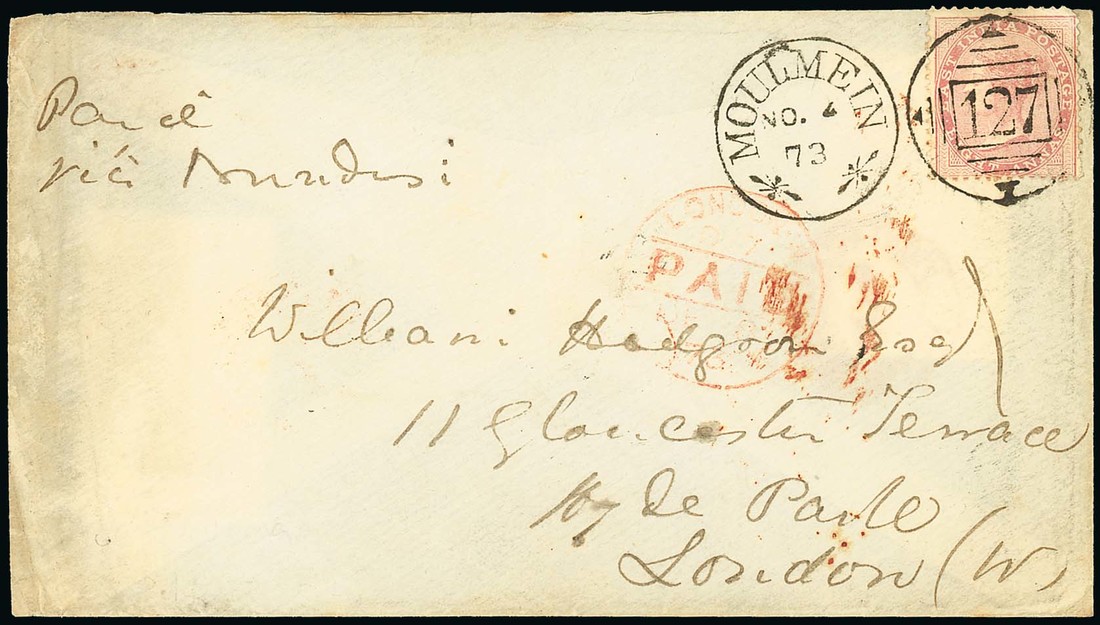 Paid
via Brindisi
MOULMEIN
NO. 4
73
EAST INDIA POSTAGE
EIGHT ANNAS
127
LONDON
PAID
William Hodgson Esq
11 Gloucester Terrace
Hyde Park
London (W)